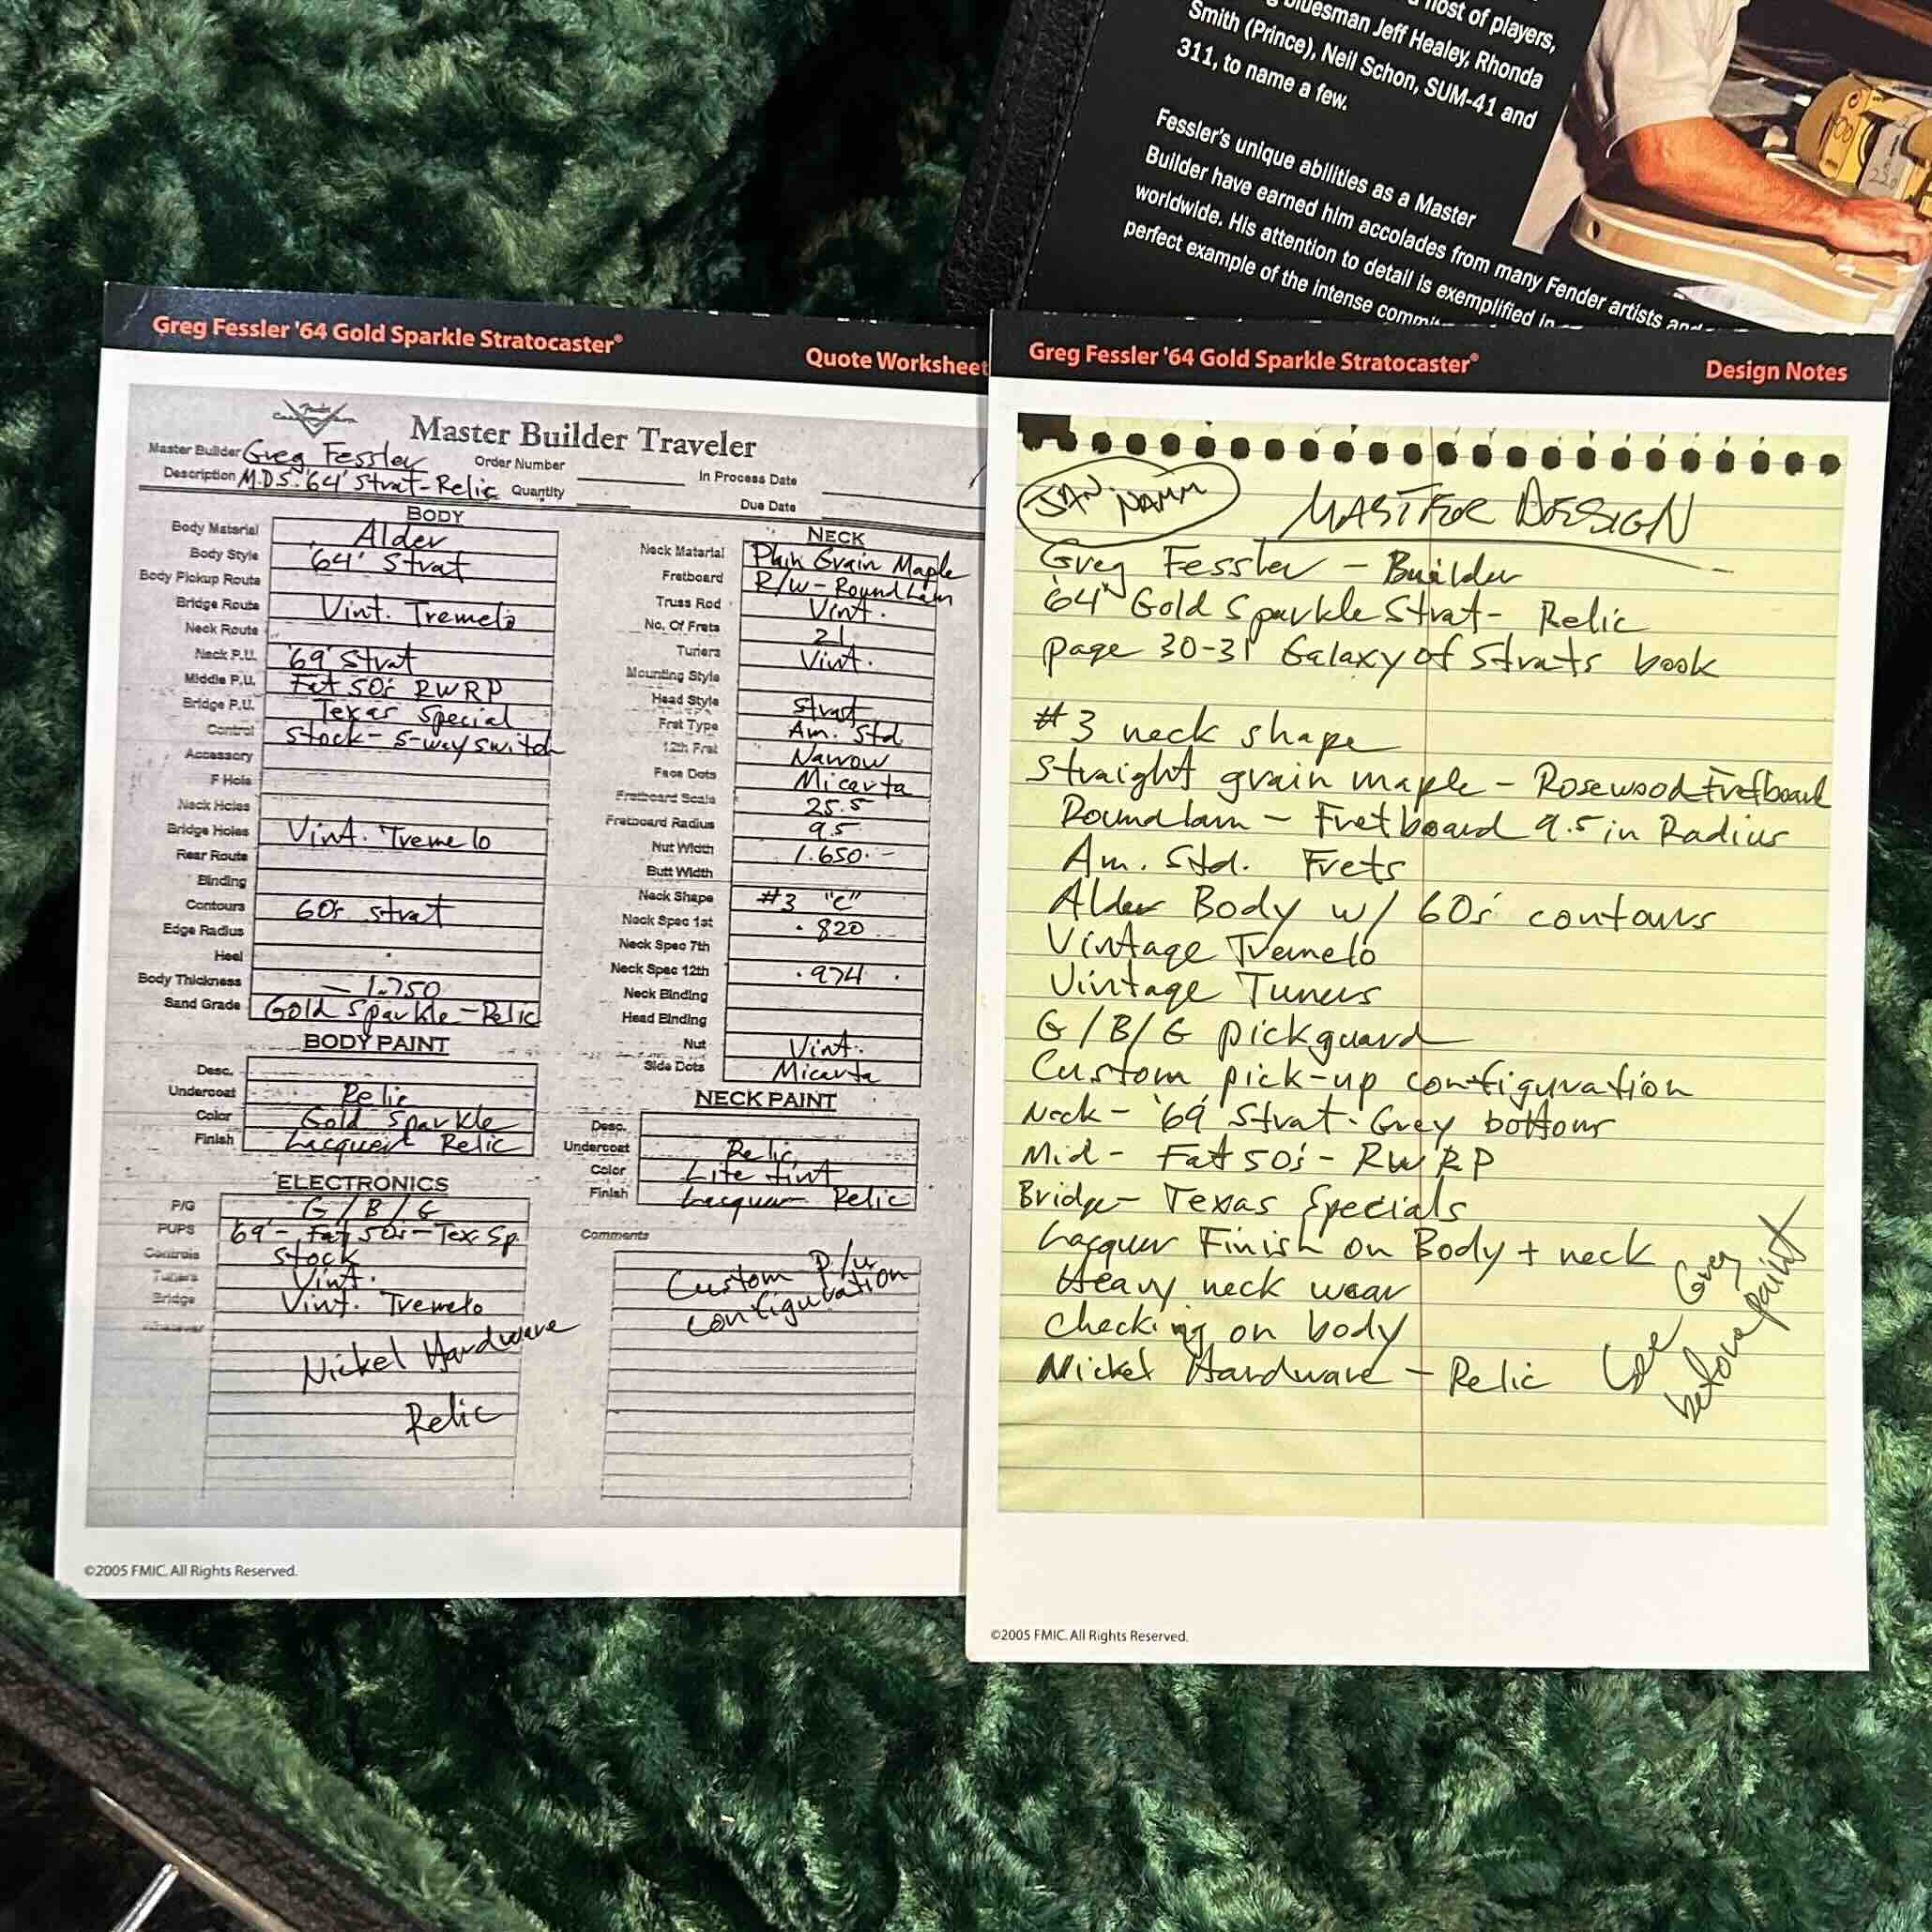 host of players,
bluesman Jeff Healey, Rhonda
Smith (Prince), Neil Schon, SUM-41 and
311, to name a few.
Fessler's unique abilities as a Master
Builder have earned him accolades from many Fender artists and
worldwide. His attention to detail is exemplified in
perfect example of the intense
Greg Fessler '64 Gold Sparkle Stratocaster®
Quote Worksheet
Master Builder Traveler
Master Builder Greg Fessler
Order Number
In Process Date
Description M.D.S. '64' Strat-Relic
Quantity
Due Date
BODY
Body Material Alder
Body Style '64' Strat
Body Pickup Route
Bridge Route Vint. Tremelo
Neck Route
Neck P.U. '69' Strat
Middle P.U. Fat 50s RWRP
Bridge P.U. Texas Special
Control Stock-5-way switch
Accessory
F Hole
Neck Holes
Bridge Holes Vint. Tremelo
Rear Route
Binding
Contours 60s Strat
Edge Radius
Heel
Body Thickness - 1.750
Sand Grade Gold Sparkle-Relic
BODY PAINT
Desc.
Undercoat Relic
Color Gold Sparkle
Finish Lacquer Relic
ELECTRONICS
P/G G/B/G
PUPS '69'- Fat 50s-Tex. Sp.
Controls Stock
Tuners Vint.
Bridge Vint. Tremelo
Whatever
Nickel Hardware
Relic
NECK
Neck Material Plain Grain Maple
Fretboard R/W-Roundlam
Truss Rod Vint.
No. Of Frets 21
Tuners Vint.
Mounting Style
Head Style Strat
Fret Type Am. Std.
12th Fret Narrow
Face Dots Micarta
Fretboard Scale 25.5
Fretboard Radius 9.5
Nut Width 1.650
Butt Width
Neck Shape #3 "C"
Neck Spec 1st .820
Neck Spec 7th
Neck Spec 12th .974
Neck Binding
Head Binding
Nut Vint.
Side Dots Micarta
NECK PAINT
Desc.
Undercoat Relic
Color Lite tint
Finish Lacquer Relic
Comments
Custom P/u
configuration
©2005 FMIC. All Rights Reserved.
Greg Fessler '64 Gold Sparkle Stratocaster®
Design Notes
JAN. NAMM
MASTER DESIGN
Greg Fessler - Builder
'64' Gold Sparkle Strat- Relic
page 30-31 Galaxy of Strats book
#3 neck shape
Straight grain maple - Rosewood Fretboard
Roundlam - Fretboard 9.5 in Radius
Am. Std. Frets
Alder Body w/ 60s' contours
Vintage Tremelo
Vintage Tuners
G/B/G pickguard
Custom pick-up configuration
Neck- '69' Strat- Grey bottoms
Mid- Fat 50's- RWRP
Bridge- Texas Specials
Lacquer Finish on Body + neck
Heavy neck wear
checking on body
Nickel Hardware - Relic
See Greg
before paint
©2005 FMIC. All Rights Reserved.